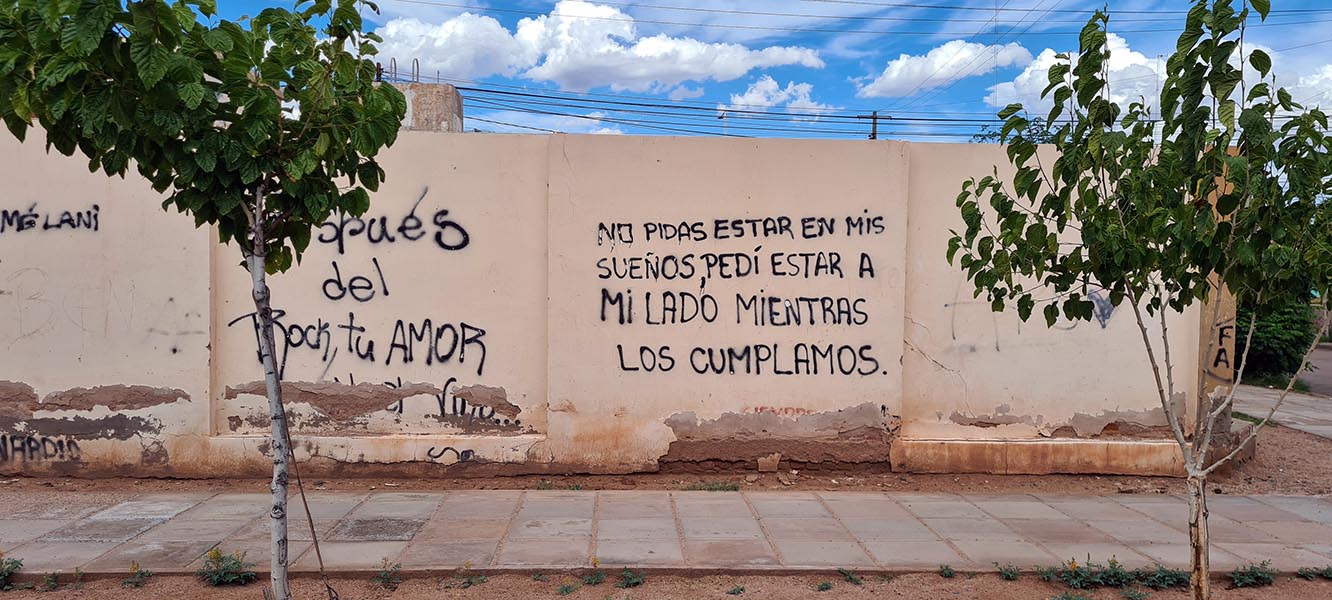 MÉLANI
Después
del
Rock, tu AMOR
NO PIDAS ESTAR EN MIS
SUEÑOS, PEDÍ ESTAR A
MI LADO MIENTRAS
LOS CUMPLAMOS.
FA